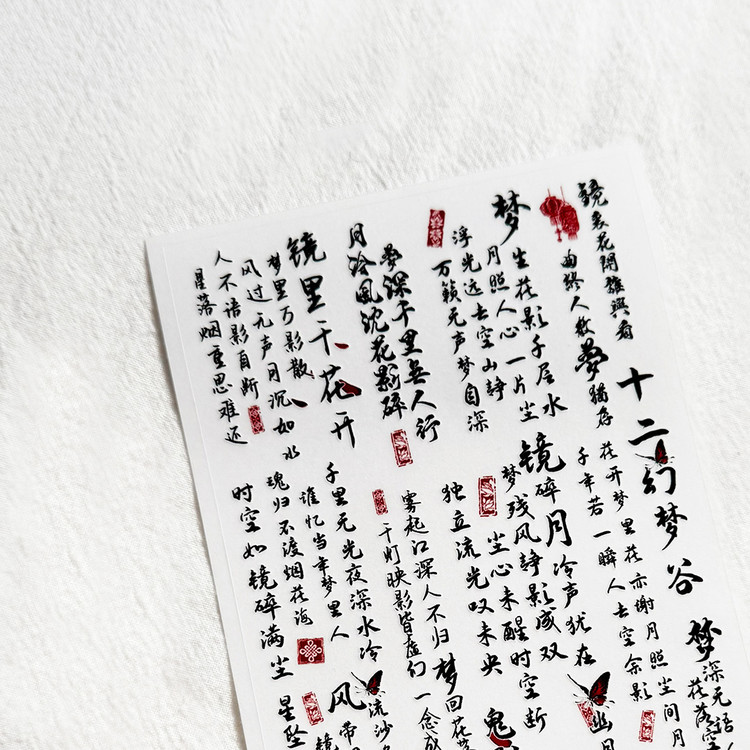 镜衰花开谁与看
曲终人散梦犹存
梦生花影千层水
月照人心一片尘
浮光远去空山静
万籁无声梦自深
梦深千里无人行
月冷风沈花影碎
镜里千花开
梦里万影散
风过无声月沉如水
人不语影自断
星落烟重思难还
十二幻梦谷
花开梦里花亦谢月照尘间月
千年若一瞬人去空余影
镜碎月冷声犹在
梦残风静影成双
尘心未醒时空断
独立流光叹未央
雾起江深人不归梦回花落
千灯映影皆虚幻一念成
千里无光夜深水冷
谁忆当年梦里人
魂归不渡烟花海
时空如镜碎满尘
梦深无语
花落空
幽月
鬼
流沙
风
带
镜
星坠